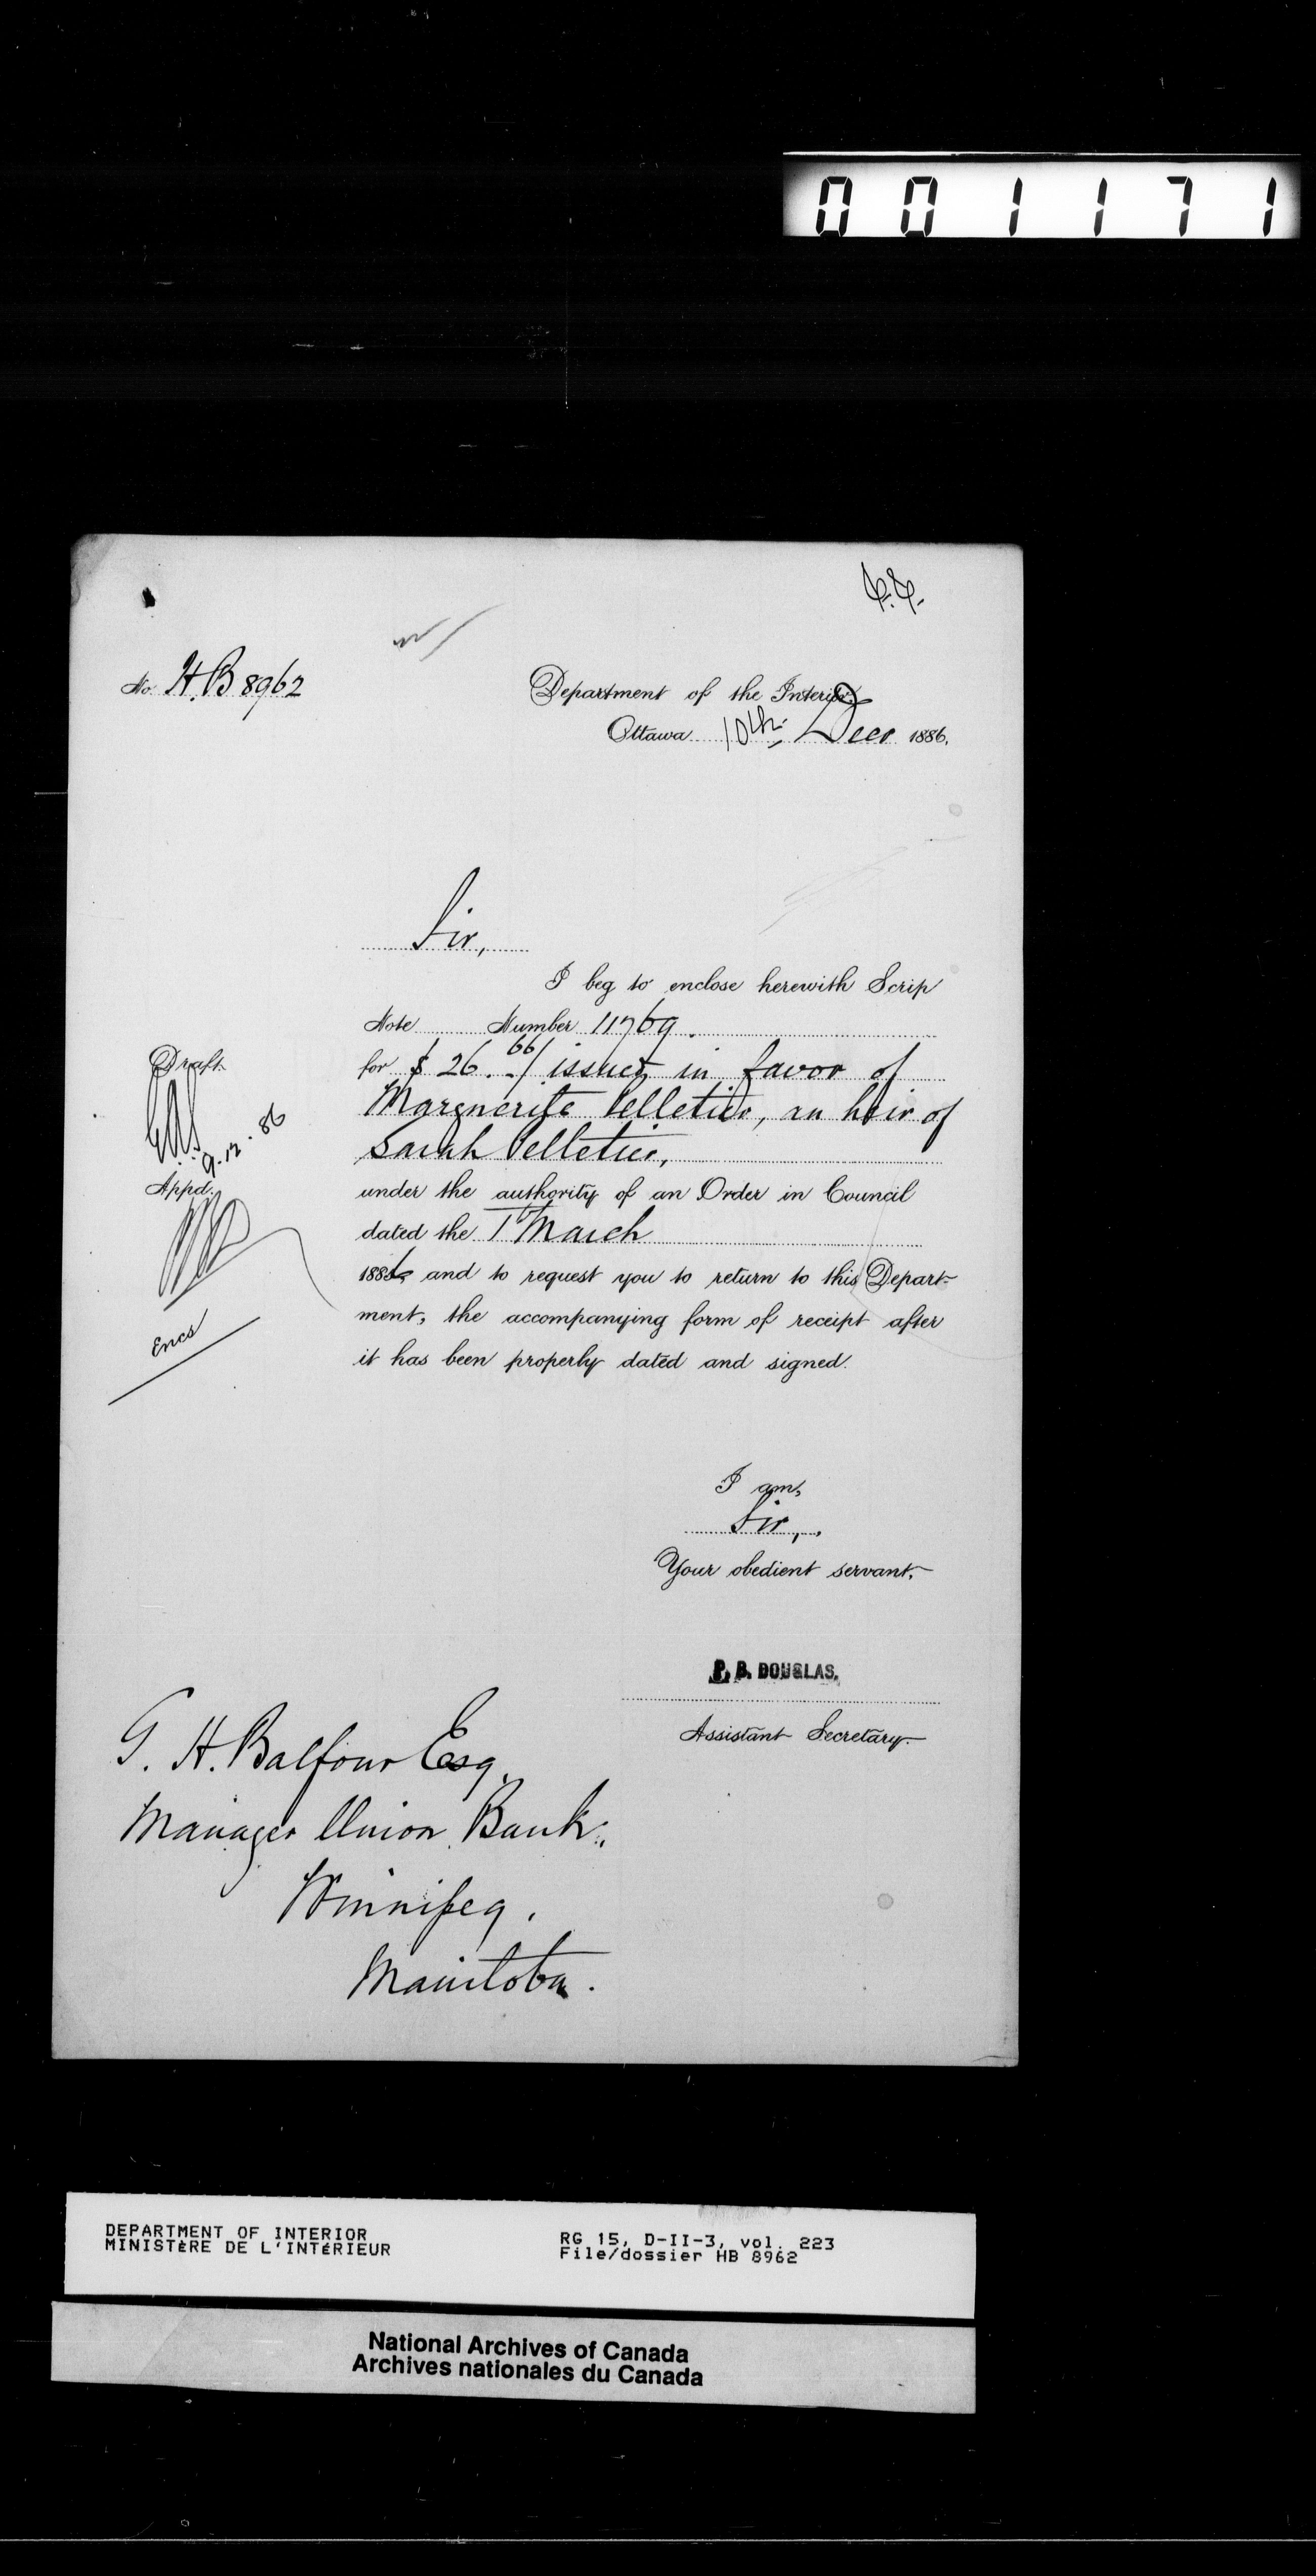 001171
No. H.B 8962
Department of the Interior.
Ottawa 10th Decr 1886.
Sir,
I beg to enclose herewith Scrip
Note Number 11769.
for $26.66/ issued in favor of
Marguerite Pelletier, an heir of
Sarah Pelletier,
under the authority of an Order in Council
dated the 1st March
1886 and to request you to return to this Depart-
ment, the accompanying form of receipt after
it has been properly dated and signed.
Draft.
9.12.86
Appd.
Encs
I am,
Sir,
Your obedient servant,
P. B. DOUGLAS.
Assistant Secretary.
G. H. Balfour Esq.
Manager Union Bank.
Winnipeg.
Manitoba.
DEPARTMENT OF INTERIOR
MINISTÈRE DE L'INTÉRIEUR
RG 15, D-II-3, vol. 223
File/dossier HB 8962
National Archives of Canada
Archives nationales du Canada